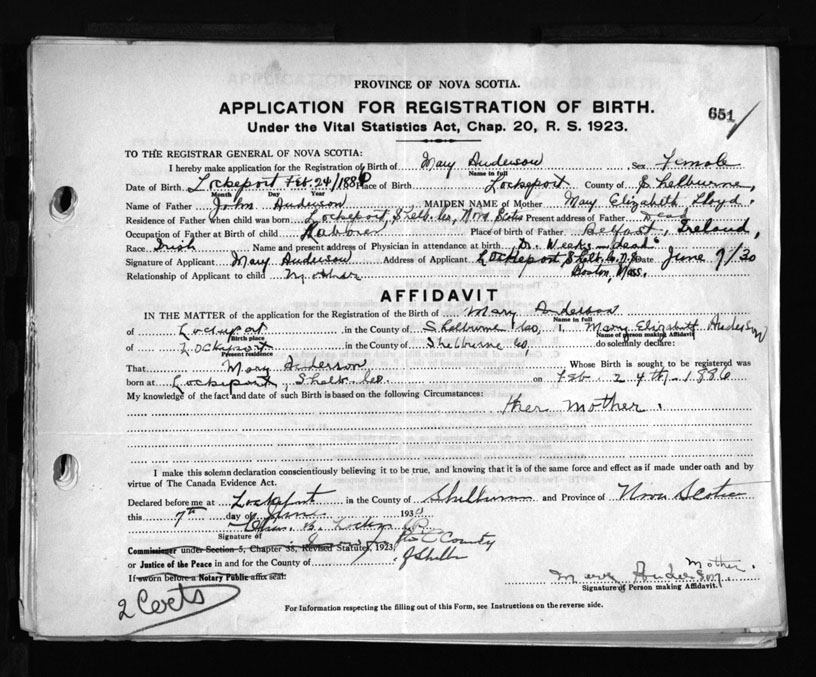 PROVINCE OF NOVA SCOTIA.
APPLICATION FOR REGISTRATION OF BIRTH.
651
Under the Vital Statistics Act, Chap. 20, R. S. 1923.
TO THE REGISTRAR GENERAL OF NOVA SCOTIA:
I hereby make application for the Registration of Birth of Mary Anderson Sex Female
Name in full
Date of Birth Lockeport Feb. 24/1886 Place of Birth Lockeport County of Shelburne,
Month Day Year
Name of Father John Anderson MAIDEN NAME of Mother Mary Elizabeth Lloyd.
Residence of Father when child was born Lockeport, Shelb. Co., Nova Scotia Present address of Father Dead
Occupation of Father at Birth of child Place of birth of Father Belfast, Ireland,
Race Irish Name and present address of Physician in attendance at birth Dr. Weeks - dead
Signature of Applicant Mary Anderson Address of Applicant Lockeport Shelb. Co. N.S. Date June 7/30
Relationship of Applicant to child Mother Boston, Mass.
AFFIDAVIT
IN THE MATTER of the application for the Registration of the Birth of Mary Anderson
Name in full
of Lockeport in the County of Shelburne Co, I, Mary Elizabeth Anderson
Birth place Name of person making Affidavit
of Lockeport in the County of Shelburne Co, do solemnly declare:
Present residence
That Mary Anderson Whose Birth is sought to be registered was
born at Lockeport, Shelb. Co. on Feb. 24th 1886
My knowledge of the fact and date of such Birth is based on the following Circumstances:
Her Mother.
I make this solemn declaration conscientiously believing it to be true, and knowing that it is of the same force and effect as if made under oath and by
virtue of The Canada Evidence Act.
Declared before me at Lockeport in the County of Shelburne and Province of Nova Scotia
this 7th day of June 1930
Signature of
Commissioner under Section 5, Chapter 38, Revised Statutes, 1923, County
or Justice of the Peace in and for the County of Shelb
If sworn before a Notary Public affix seal:
Mary Anderson Mother.
Signature of Person making Affidavit.
2 Certs
For Information respecting the filling out of this Form, see Instructions on the reverse side.